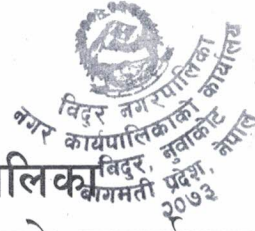 विदुर नगरपालिका
नगर कार्यपालिकाको कार्यालय
बिदुर, नुवाकोट
बागमती प्रदेश, नेपाल
२०७३
लिका